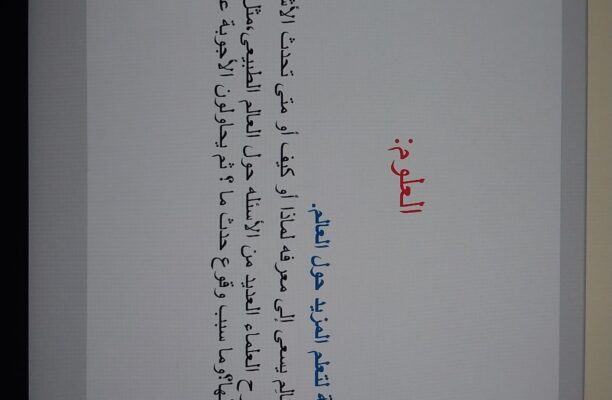 العلوم:
لتعلم المزيد حول العالم.
يسعى إلى معرفه لماذا أو كيف أو متى تحدث
العلماء العديد من الأسئله حول العالم الطبيعي،مثل
وما سبب وقوع حدث ما ؟ ثم يحاولون الأجوبة